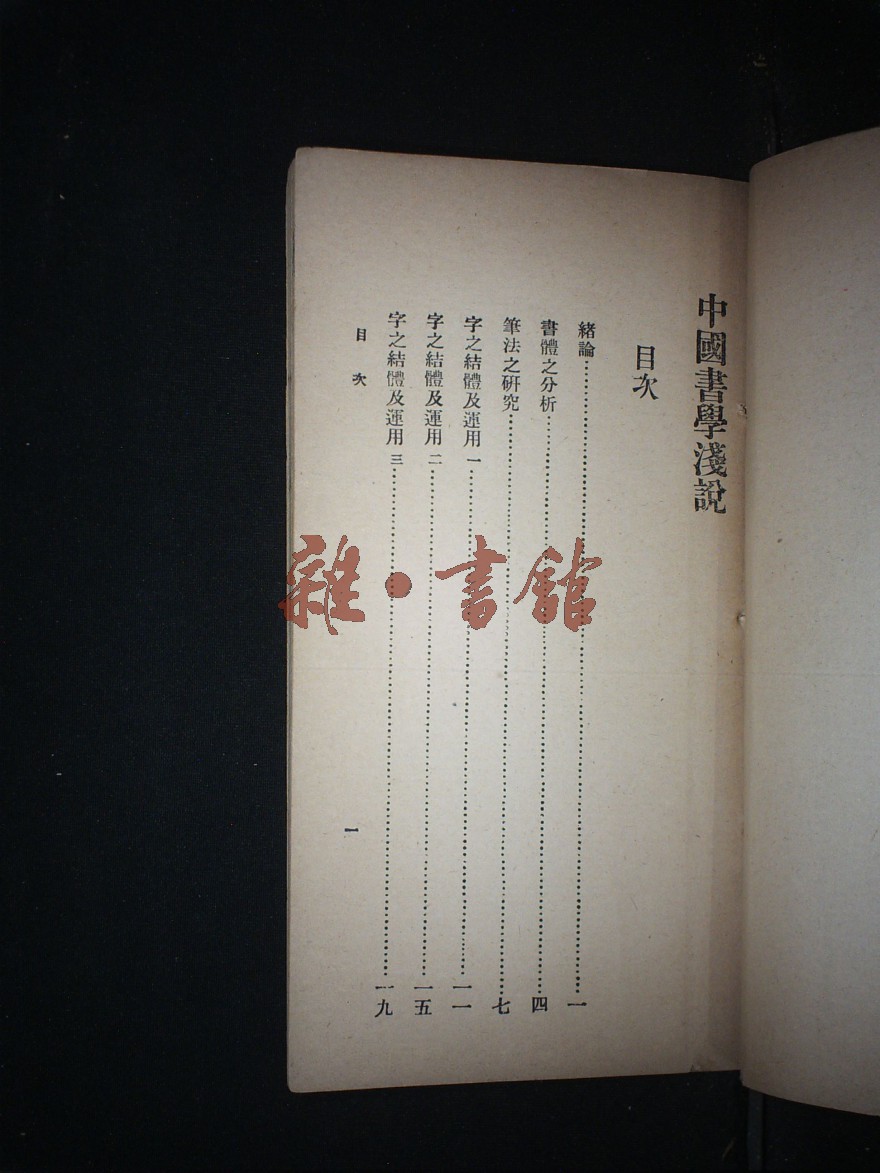 中國書學淺說
目次
緒論……一
書體之分析……四
筆法之研究……七
字之結體及運用 一……一一
字之結體及運用 二……一五
字之結體及運用 三……一九
目次
一
雜·書館